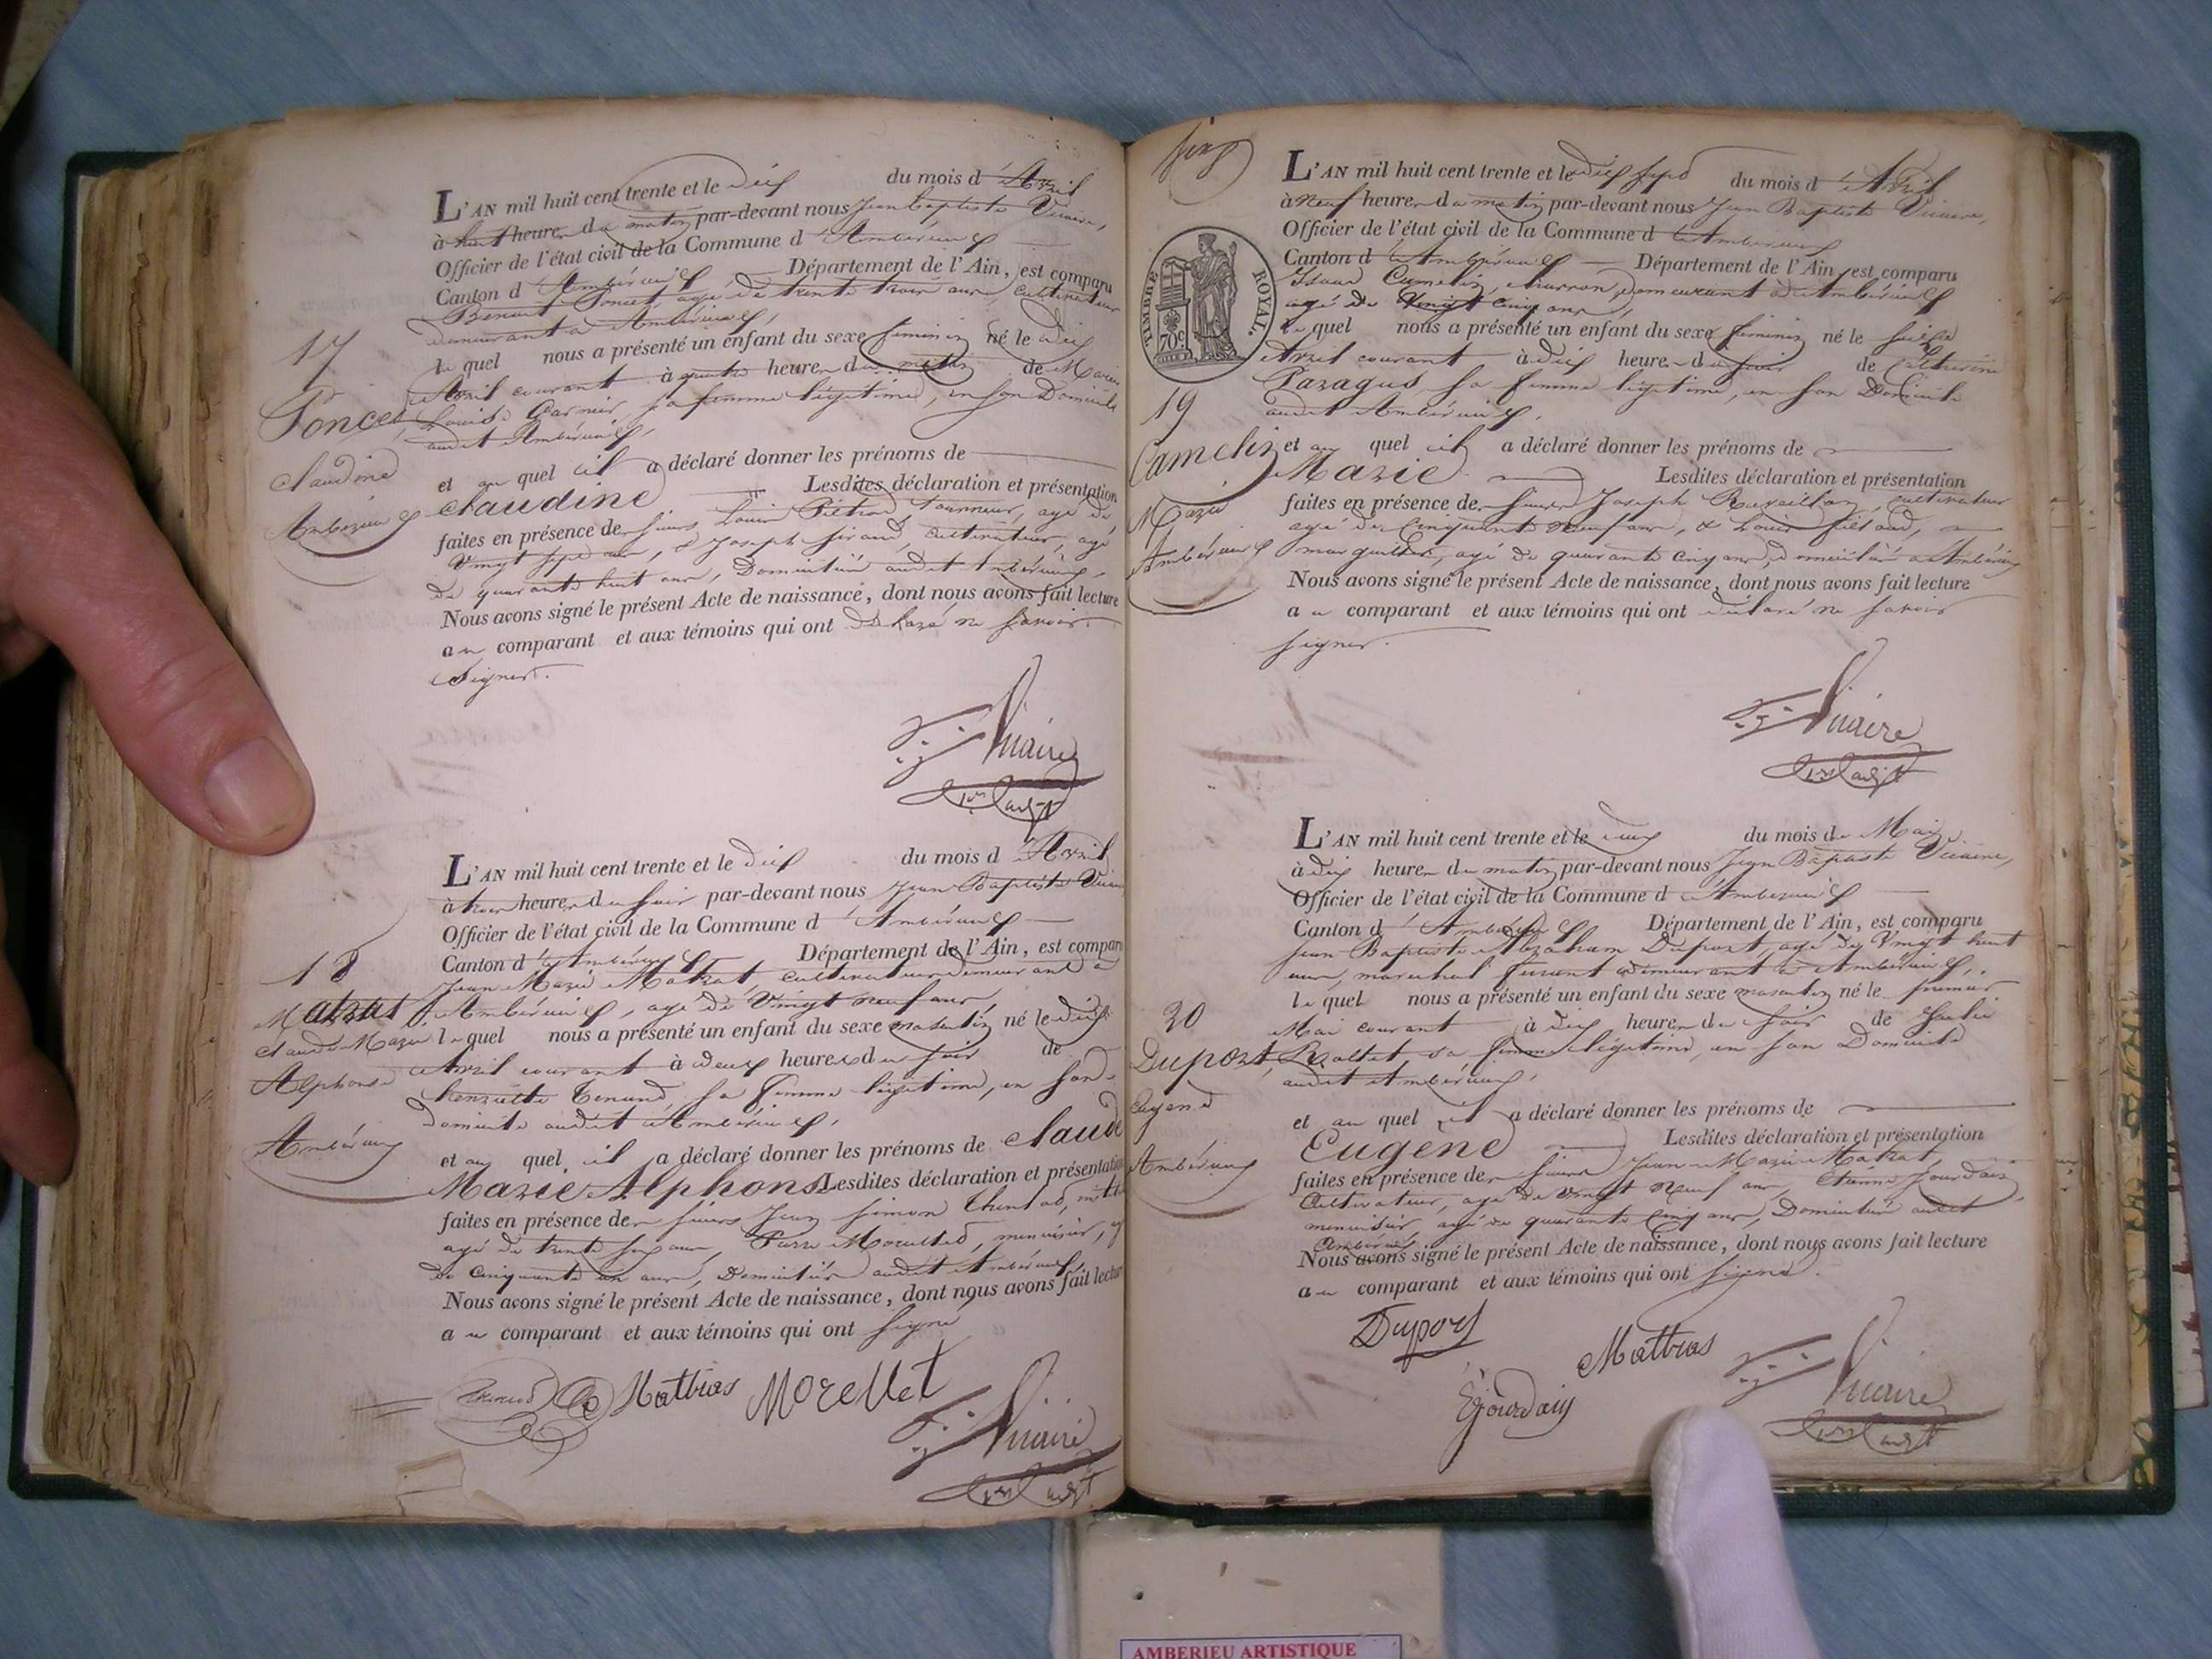 L'AN mil huit cent trente et le dix du mois d'Avril
à huit heures du matin par-devant nous Jean Baptiste Vicaire,
Officier de l'état civil de la Commune d'Ambérieux
Canton d'Ambérieux Département de l'Ain, est comparu
Benoit Poncet, agé de trente trois ans, cultivateur
demeurant à Ambérieux,
17
le quel nous a présenté un enfant du sexe feminin né le dix
Avril courant à quatre heures du matin de Marie
Poncet
Louise Garnier, sa femme légitime, en son Domicile
audit Ambérieux,
Claudine
et au quel il a déclaré donner les prénoms de
Claudine Lesdites déclaration et présentation
Ambérieux
faites en présence de sieurs Louis tourneur, agé de
Vingt sept ans, & Joseph cultivateur, agé
de quarante huit ans, Domiciliés audit Ambérieux,
Nous avons signé le présent Acte de naissance, dont nous avons fait lecture
au comparant et aux témoins qui ont déclaré ne savoir
signer.
Vicaire
L'AN mil huit cent trente et le dix du mois d'Avril
à trois heures du soir par-devant nous Jean Baptiste Vicaire
Officier de l'état civil de la Commune d'Ambérieux
Canton d'Ambérieux Département de l'Ain, est comparu
18
Jean Marie Matrat, cultivateur demeurant à
Matrat
Ambérieux, agé de Vingt neuf ans,
Claude Marie
le quel nous a présenté un enfant du sexe masculin né le dix
Alphonse
Avril courant à deux heures du soir de
henriette Tenand, sa femme légitime, en son
domicile audit Ambérieux,
Ambérieux
et au quel il a déclaré donner les prénoms de Claude
Marie Alphonse Lesdites déclaration et présentation
faites en présence de sieurs Jean Simon
agé de trente six ans, menuisier,
de cinquante un ans, Domiciliés audit Ambérieux
Nous avons signé le présent Acte de naissance, dont nous avons fait lecture
au comparant et aux témoins qui ont signé
Matras Morellet
Vicaire
L'AN mil huit cent trente et le dix sept du mois d'Avril
à Neuf heures du matin par-devant nous Jean Baptiste Vicaire,
Officier de l'état civil de la Commune d'Ambérieux
Canton d'Ambérieux Département de l'Ain, est comparu
TIMBRE ROYAL.
70c
Isaac Camelin, demeurant à Ambérieux
agé de Vingt cinq ans,
le quel nous a présenté un enfant du sexe feminin né le seize
Avril courant à dix heures du soir de Catherine
sa femme légitime, en son Domicile
19
audit Ambérieux,
Camelin
et au quel il a déclaré donner les prénoms de
Marie Lesdites déclaration et présentation
Marie
faites en présence de sieurs Joseph Ravaillon, cultivateur
agé de Cinquante neuf ans, & Louis
Ambérieux
marguiller, agé de quarante cinq ans, domiciliés à Ambérieux
Nous avons signé le présent Acte de naissance, dont nous avons fait lecture
au comparant et aux témoins qui ont déclaré ne savoir
signer.
Vicaire
L'AN mil huit cent trente et le deux du mois de Mai
à dix heures du matin par-devant nous Jean Baptiste Vicaire,
Officier de l'état civil de la Commune d'Ambérieux
Canton d'Ambérieux Département de l'Ain, est comparu
Jean Baptiste Abraham Duport, agé de Vingt huit
ans, maréchal ferrant demeurant à Ambérieux,
le quel nous a présenté un enfant du sexe masculin né le premier
20
Mai courant à dix heures du soir de
Duport,
sa femme légitime, en son Domicile
audit Ambérieux,
Eugene
et au quel il a déclaré donner les prénoms de
Eugene Lesdites déclaration et présentation
Ambérieux
faites en présence de sieurs Jean Marie Matrat,
Cultivateur, agé de vingt Neuf ans, Etienne Jourdain
menuisier, agé de quarante Cinq ans, Domiciliés audit
Ambérieux
Nous avons signé le présent Acte de naissance, dont nous avons fait lecture
au comparant et aux témoins qui ont signé.
Duport
Matras
E Jourdain
Vicaire
AMBERIEU ARTISTIQUE